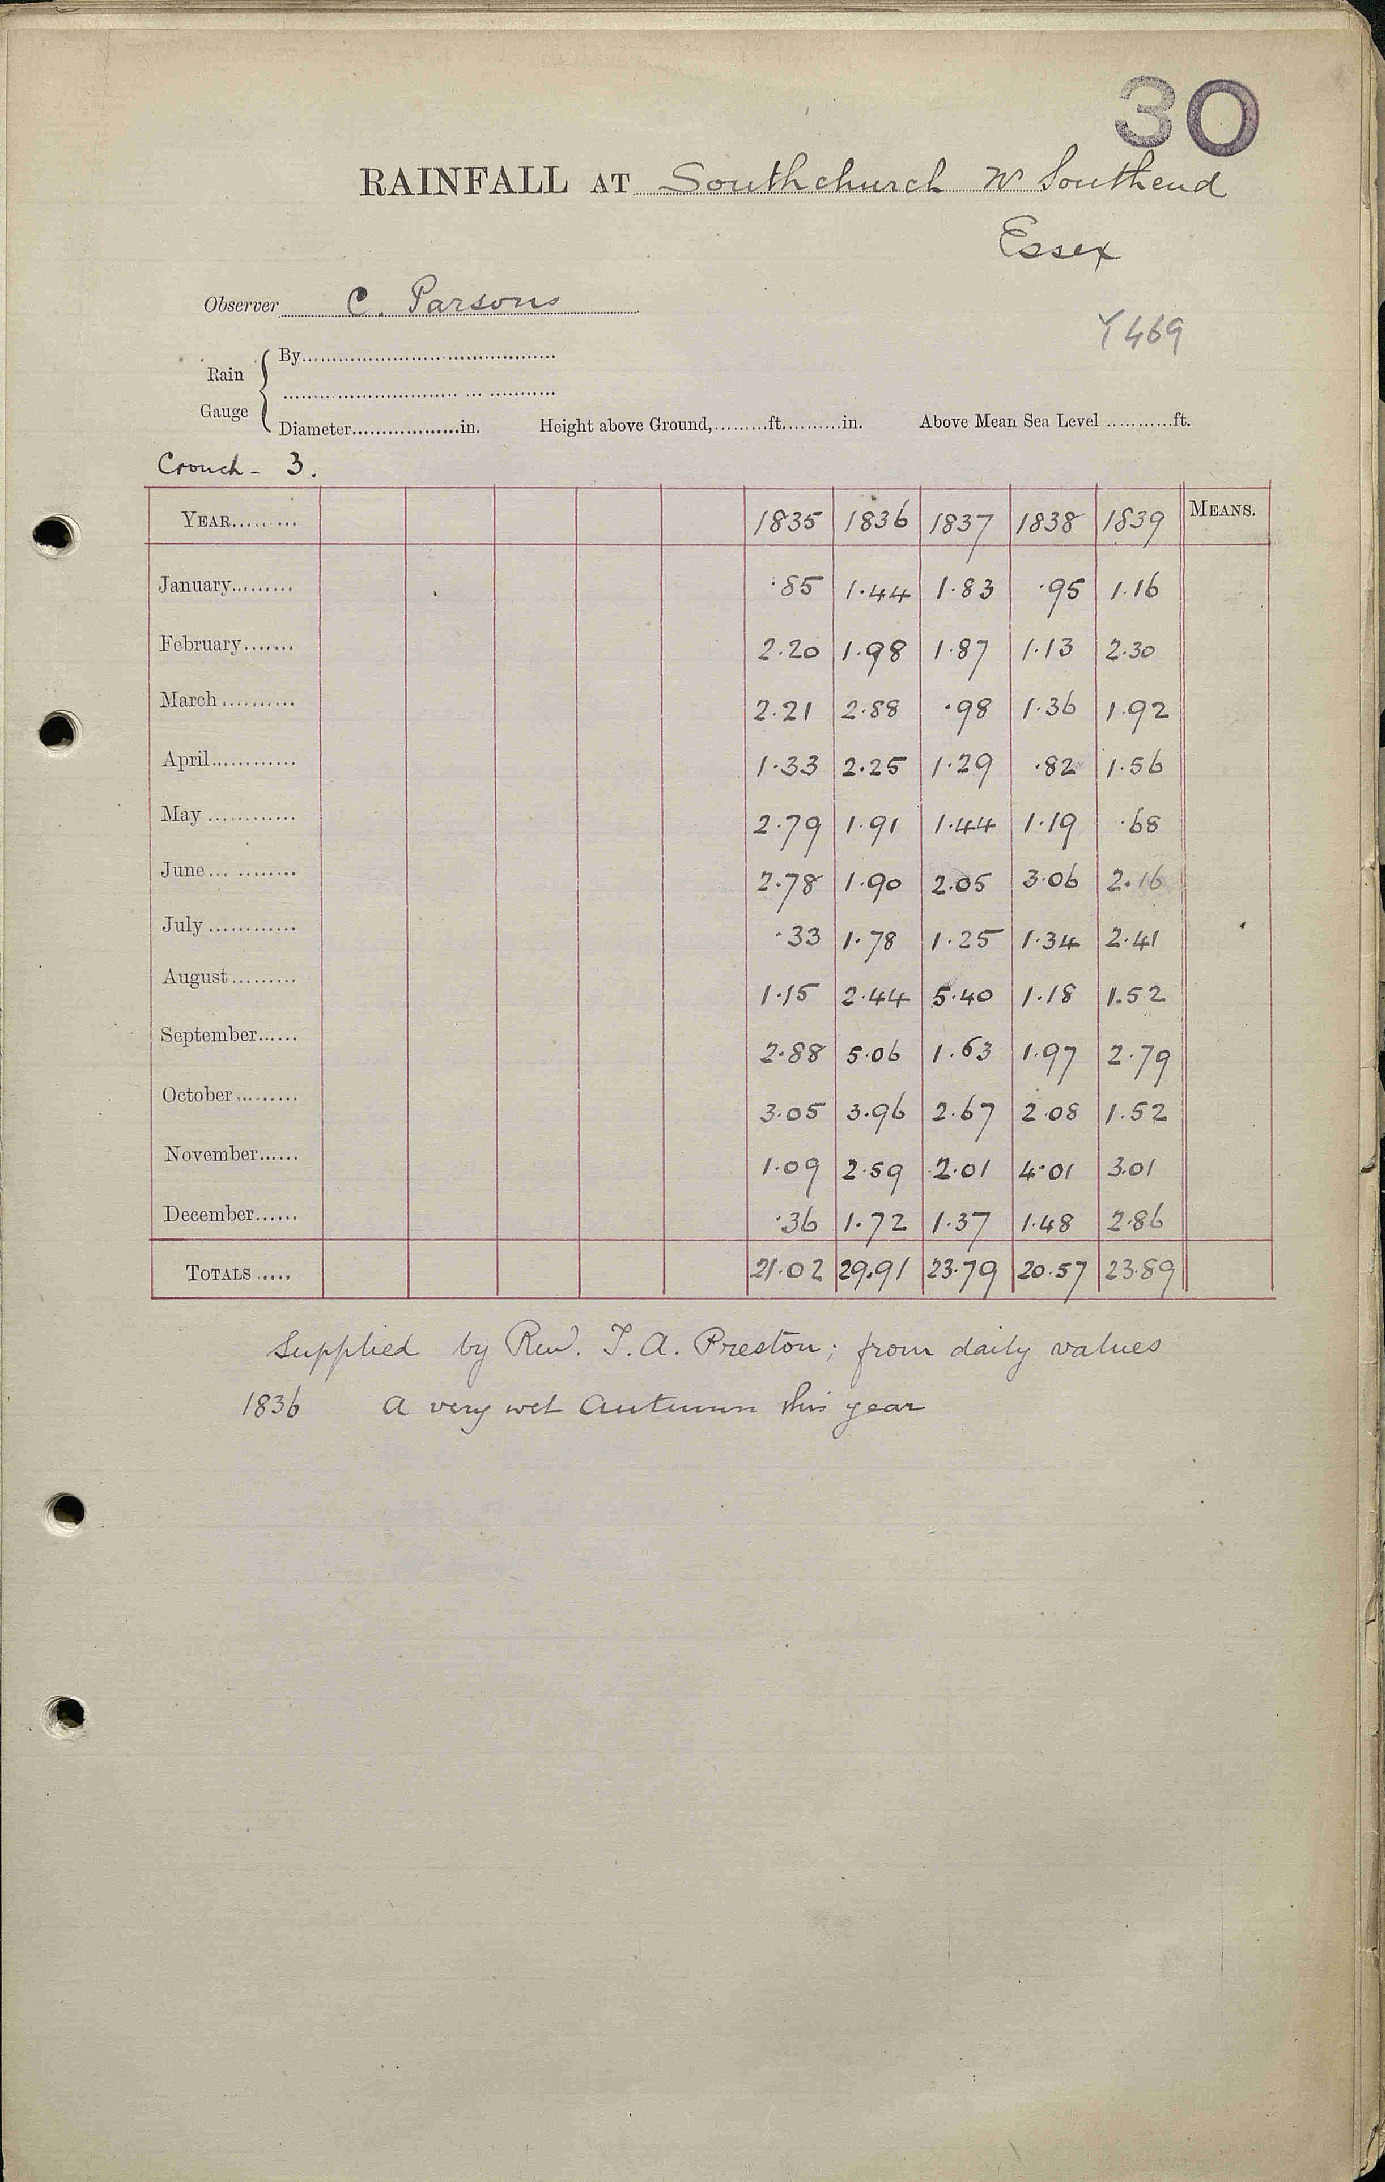 30
RAINFALL AT Southchurch Nr Southend
Essex
Observer C. Parsons
Y 469
Rain Gauge { By
Diameter in. Height above Ground, ft. in. Above Mean Sea Level ft.
Crouch - 3.
YEAR 1835 1836 1837 1838 1839 MEANS.
January ·85 1·44 1·83 ·95 1·16
February 2·20 1·98 1·87 1·13 2·30
March 2·21 2·88 ·98 1·36 1·92
April 1·33 2·25 1·29 ·82 1·56
May 2·79 1·91 1·44 1·19 ·68
June 2·78 1·90 2·05 3·06 2·16
July ·33 1·78 1·25 1·34 2·41
August 1·15 2·44 5·40 1·18 1·52
September 2·88 5·06 1·63 1·97 2·79
October 3·05 3·96 2·67 2·08 1·52
November 1·09 2·59 2·01 4·01 3·01
December ·36 1·72 1·37 1·48 2·86
TOTALS 21·02 29·91 23·79 20·57 23·89
Supplied by Rev. T. A. Preston; from daily values
1836 A very wet Autumn this year